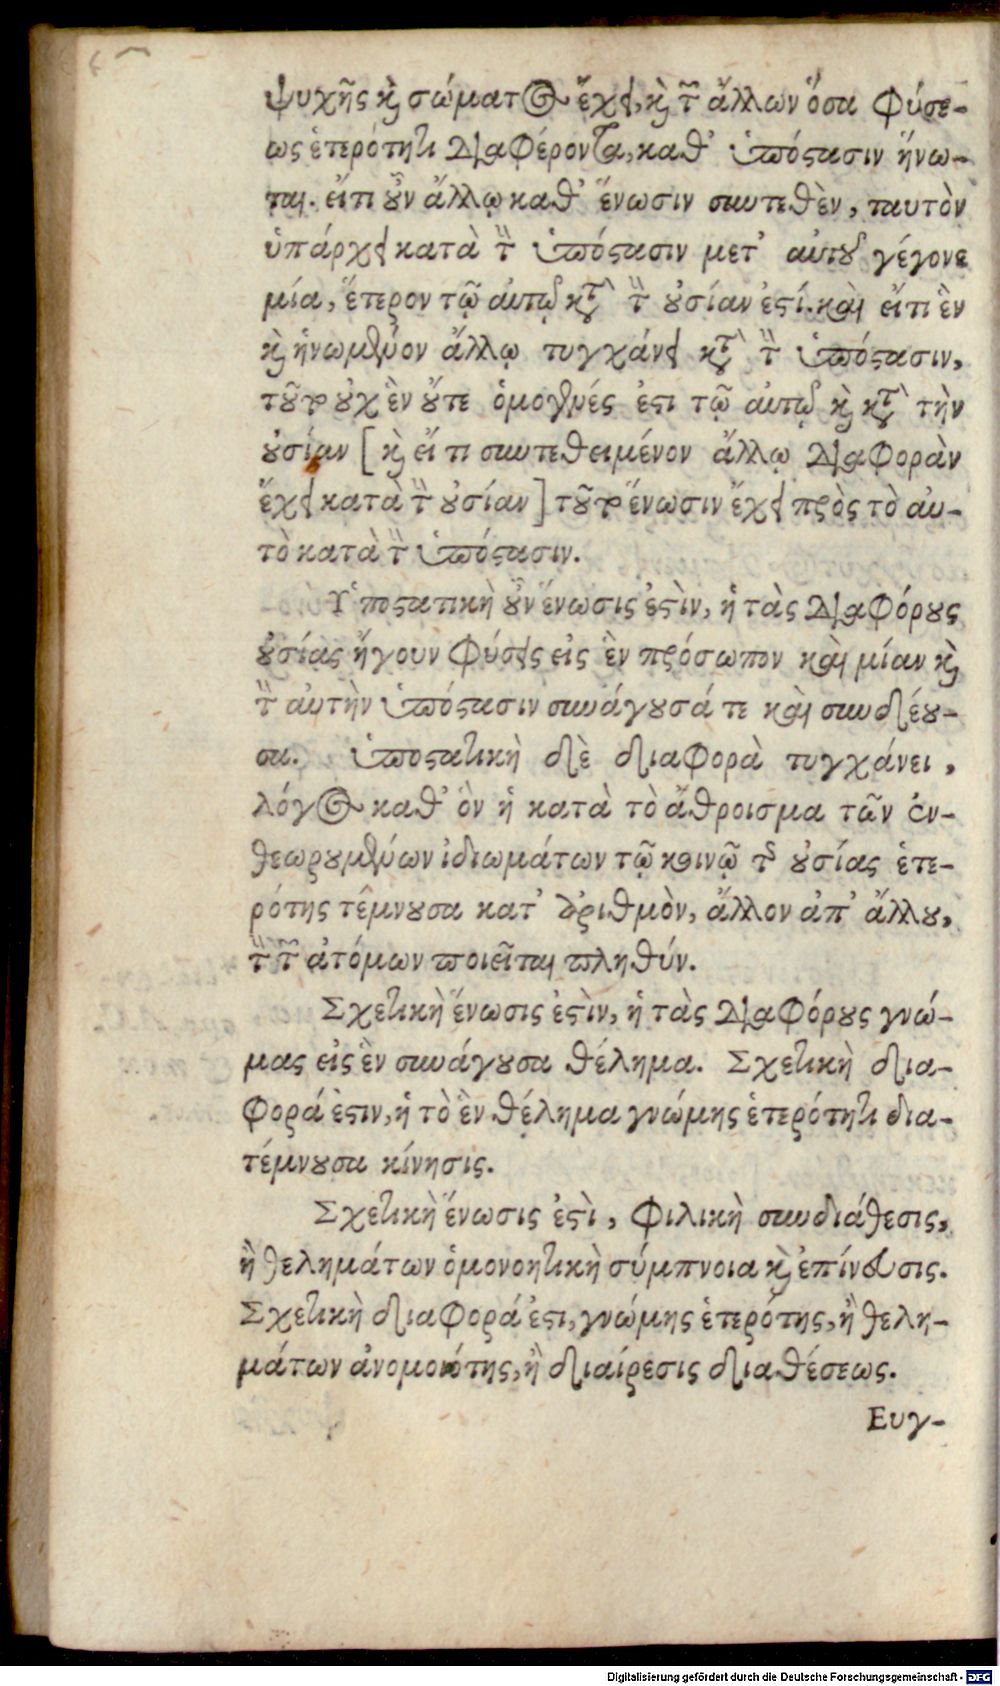 ψυχῆς καὶ σώματος ἔχει, καὶ τῶν ἄλλων ὅσα φύσε-
ως ἑτερότητι διαφέροντα, καθ' ὑπόστασιν ἥνω-
ται. εἴ τι οὖν ἄλλῳ καθ' ἕνωσιν συντεθὲν, ταυτὸν
ὑπάρχει κατὰ τὴν ὑπόστασιν μετ' αὐτοῦ γέγονε
μία, ἕτερον τῷ αὐτῷ κατὰ τὴν οὐσίαν ἐστί. καὶ εἴ τι ἓν
καὶ ἡνωμένον ἄλλῳ τυγχάνει κατὰ τὴν ὑπόστασιν,
τοῦτο οὐχ ἓν οὔτε ὁμογενές ἐστι τῷ αὐτῷ καὶ κατὰ τὴν
οὐσίαν [καὶ εἴ τι συντεθειμένον ἄλλῳ διαφορὰν
ἔχει κατὰ τὴν οὐσίαν] τοῦτο ἕνωσιν ἔχει πρὸς τὸ αὐ-
τὸ κατὰ τὴν ὑπόστασιν.
Ὑποστατικὴ οὖν ἕνωσις ἐστὶν, ἡ τὰς διαφόρους
οὐσίας ἤγουν φύσεις εἰς ἓν πρόσωπον καὶ μίαν καὶ
τὴν αὐτὴν ὑπόστασιν συνάγουσά τε καὶ συνδέου-
σα. ὑποστατικὴ δὲ διαφορὰ τυγχάνει,
λόγος καθ' ὃν ἡ κατὰ τὸ ἄθροισμα τῶν ἐν-
θεωρουμένων ἰδιωμάτων τῷ κοινῷ τῆς οὐσίας ἑτε-
ρότης τέμνουσα κατ' ἀριθμὸν, ἄλλον ἀπ' ἄλλου,
τὴν τῶν ἀτόμων ποιεῖται πληθύν.
Σχετικὴ ἕνωσις ἐστὶν, ἡ τὰς διαφόρους γνώ-
μας εἰς ἓν συνάγουσα θέλημα. Σχετικὴ δια-
φορά ἐστιν, ἡ τὸ ἓν θέλημα γνώμης ἑτερότητι δια-
τέμνουσα κίνησις.
Σχετικὴ ἕνωσις ἐστὶ, φιλικὴ συνδιάθεσις,
ἢ θελημάτων ὁμονοητικὴ σύμπνοια καὶ ἐπίνευσις.
Σχετικὴ διαφορά ἐστι, γνώμης ἑτερότης, ἢ θελη-
μάτων ἀνομοιότης, ἢ διαίρεσις διαθέσεως.
Ευγ-
Digitalisierung gefördert durch die Deutsche Forschungsgemeinschaft - DFG